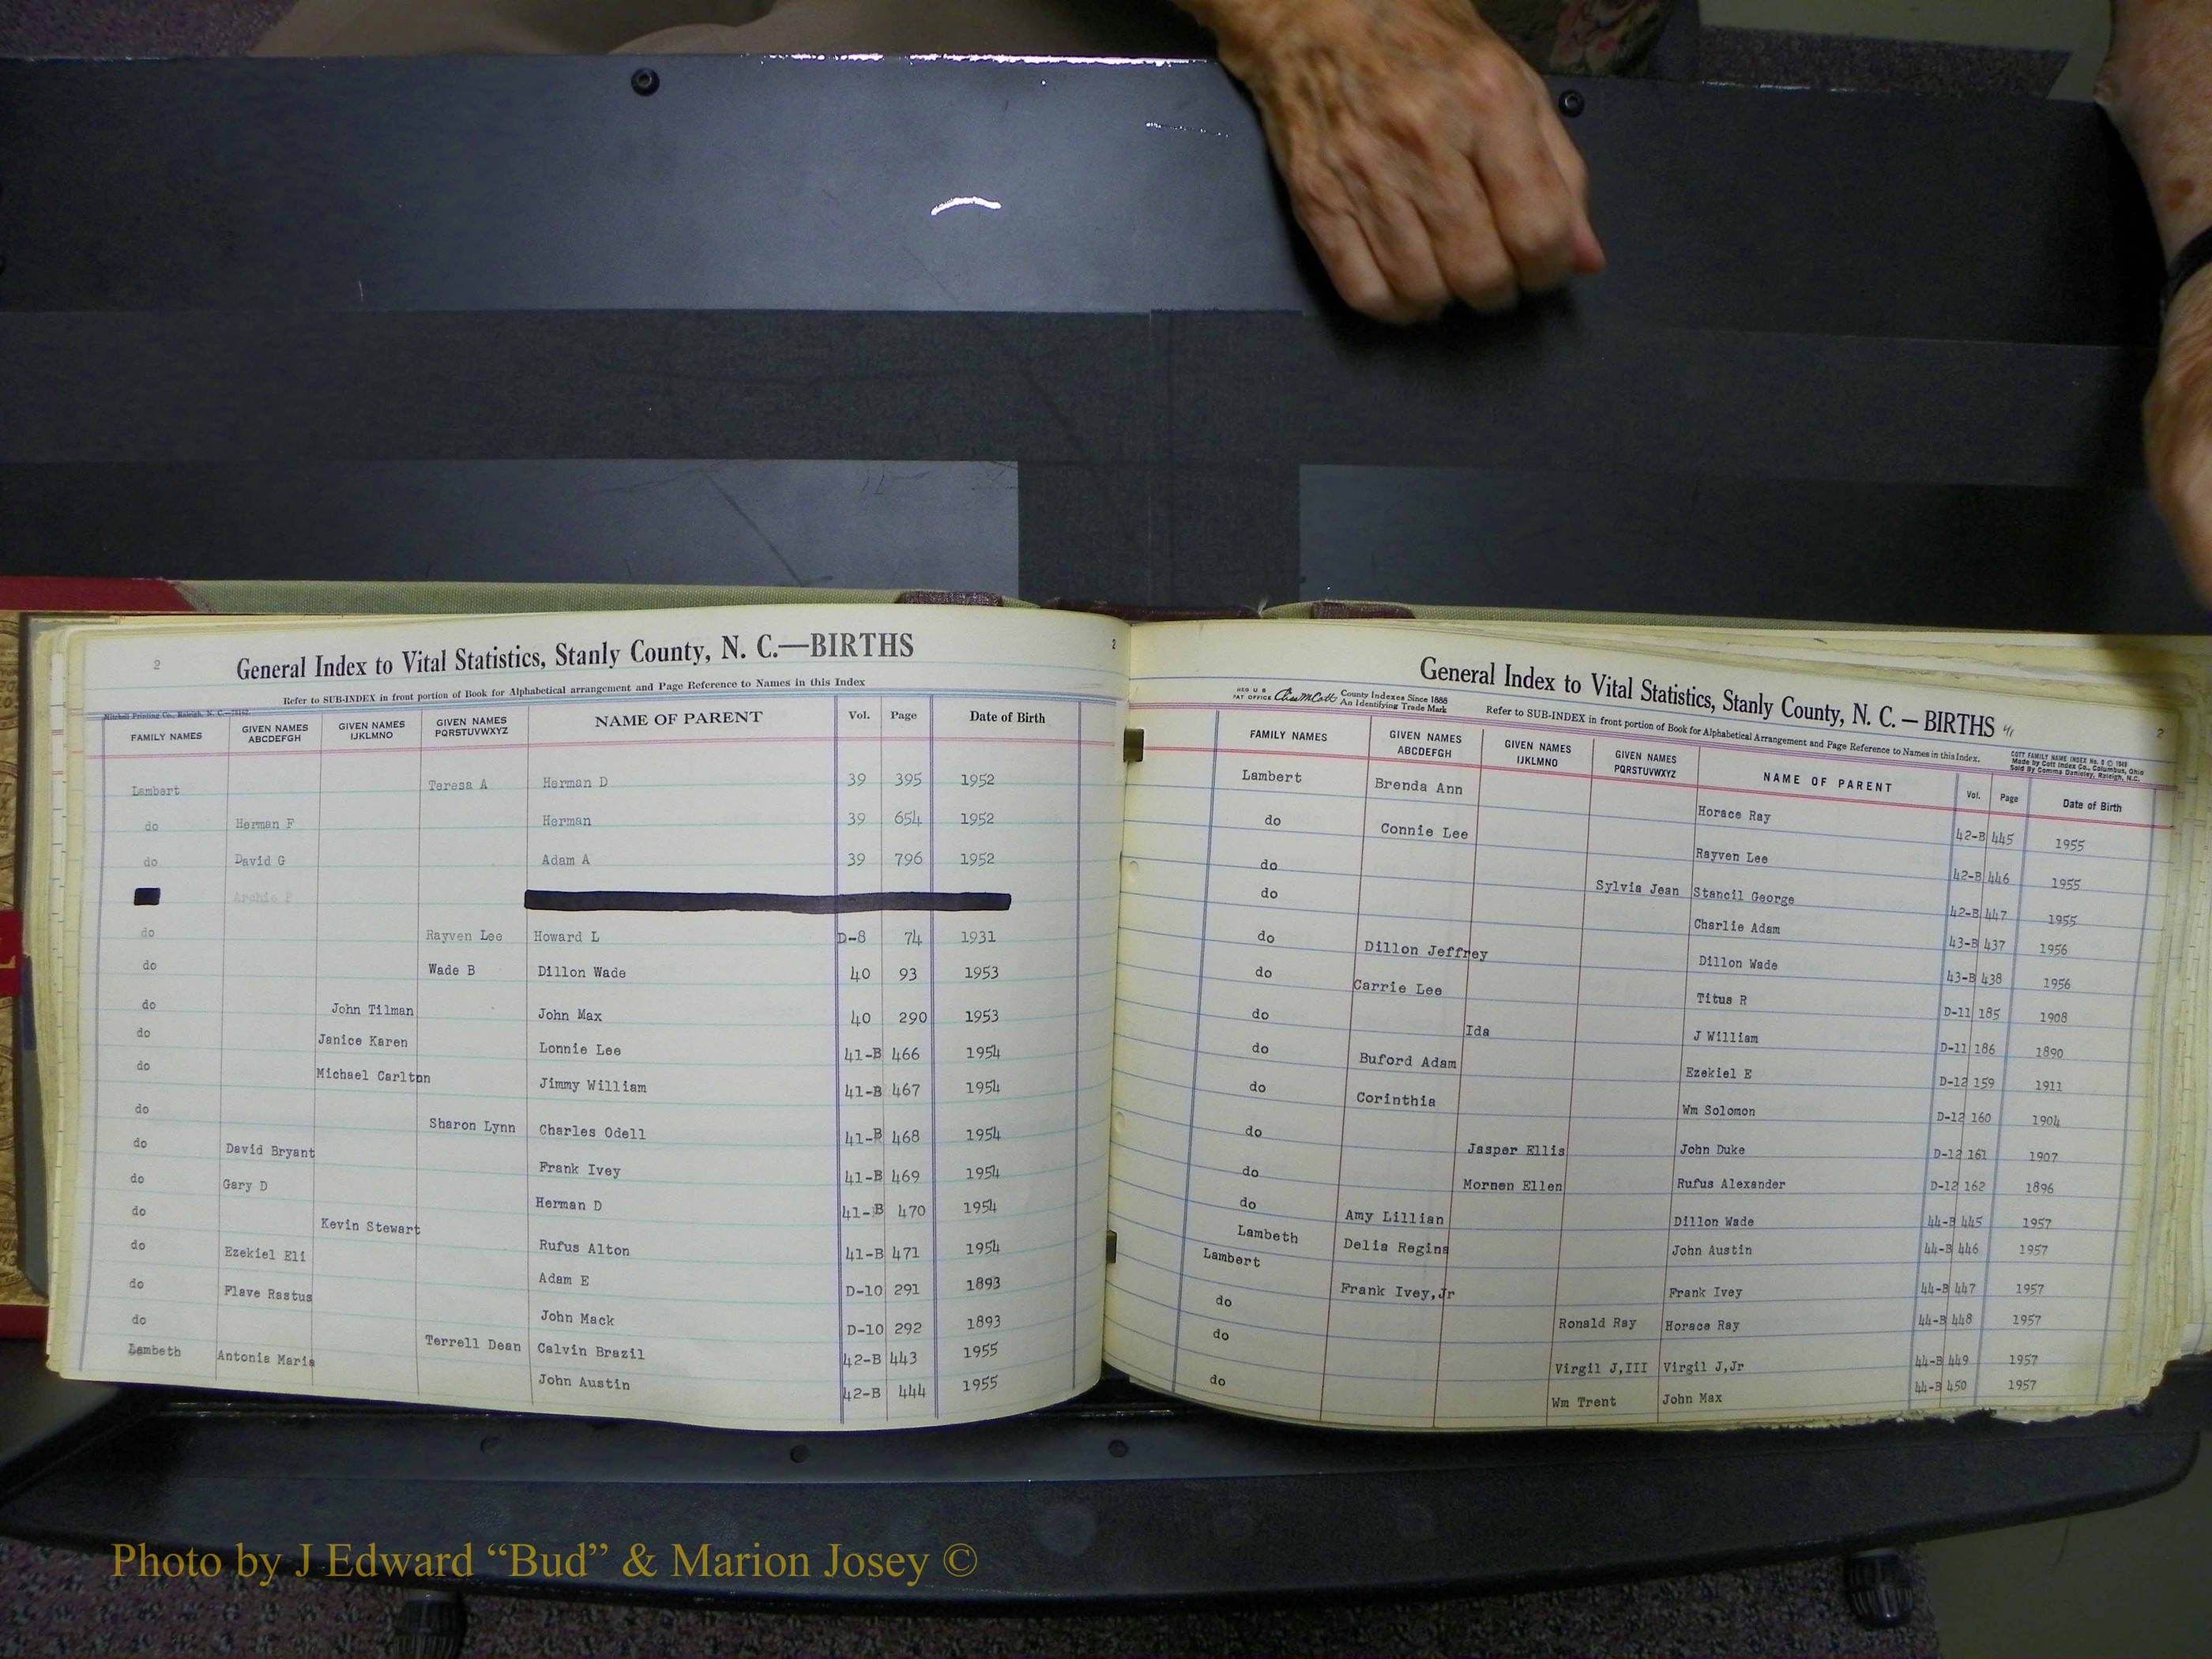 2
General Index to Vital Statistics, Stanly County, N. C.—BIRTHS
Refer to SUB-INDEX in front portion of Book for Alphabetical arrangement and Page Reference to Names in this Index
Mitchell Printing Co., Raleigh, N. C.
FAMILY NAMES GIVEN NAMES ABCDEFGH GIVEN NAMES IJKLMNO GIVEN NAMES PQRSTUVWXYZ NAME OF PARENT Vol. Page Date of Birth
Lambert Teresa A Herman D 39 395 1952
do Herman F Herman 39 654 1952
do David G Adam A 39 796 1952
Archie
do Rayven Lee Howard L D-8 74 1931
do Wade B Dillon Wade 40 93 1953
do John Tilman John Max 40 290 1953
do Janice Karen Lonnie Lee 41-B 466 1954
do Michael Carlton Jimmy William 41-B 467 1954
do Sharon Lynn Charles Odell 41-B 468 1954
do David Bryant Frank Ivey 41-B 469 1954
do Gary D Herman D 41-B 470 1954
do Kevin Stewart Rufus Alton 41-B 471 1954
do Ezekiel Eli Adam E D-10 291 1893
do Flave Rastus John Mack D-10 292 1893
do Terrell Dean Calvin Brazil 42-B 443 1955
Lambeth Antonia Maria John Austin 42-B 444 1955
2
General Index to Vital Statistics, Stanly County, N. C. — BIRTHS
2
REG U S PAT OFFICE County Indexes Since 1888 An Identifying Trade Mark
Refer to SUB-INDEX in front portion of Book for Alphabetical Arrangement and Page Reference to Names in this Index.
COTT FAMILY NAME INDEX No. 5 © 1949
Made by Cott Index Co., Columbus, Ohio
Sold By Comma Danieley, Raleigh, N.C.
FAMILY NAMES GIVEN NAMES ABCDEFGH GIVEN NAMES IJKLMNO GIVEN NAMES PQRSTUVWXYZ NAME OF PARENT Vol. Page Date of Birth
Lambert Brenda Ann Horace Ray 42-B 445 1955
do Connie Lee Rayven Lee 42-B 446 1955
do Sylvia Jean Stancil George 42-B 447 1955
do Charlie Adam 43-B 437 1956
do Dillon Jeffrey Dillon Wade 43-B 438 1956
do Carrie Lee Titus R D-11 185 1908
do Ida J William D-11 186 1890
do Buford Adam Ezekiel E D-12 159 1911
do Corinthia Wm Solomon D-12 160 1904
do Jasper Ellis John Duke D-12 161 1907
do Mornen Ellen Rufus Alexander D-12 162 1896
do Amy Lillian Dillon Wade 44-B 445 1957
Lambeth Delia Regina John Austin 44-B 446 1957
Lambert Frank Ivey,Jr Frank Ivey 44-B 447 1957
do Ronald Ray Horace Ray 44-B 448 1957
do Virgil J,III Virgil J,Jr 44-B 449 1957
do Wm Trent John Max 44-B 450 1957
Photo by J Edward “Bud” & Marion Josey ©